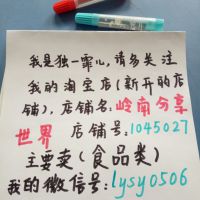 我是独一霸心,请多关注
我的淘宝店(新开的店
铺),店铺名:岭南分享
世界 店铺号:1045027
主要卖(食品类)
我的微信号:lysy0506